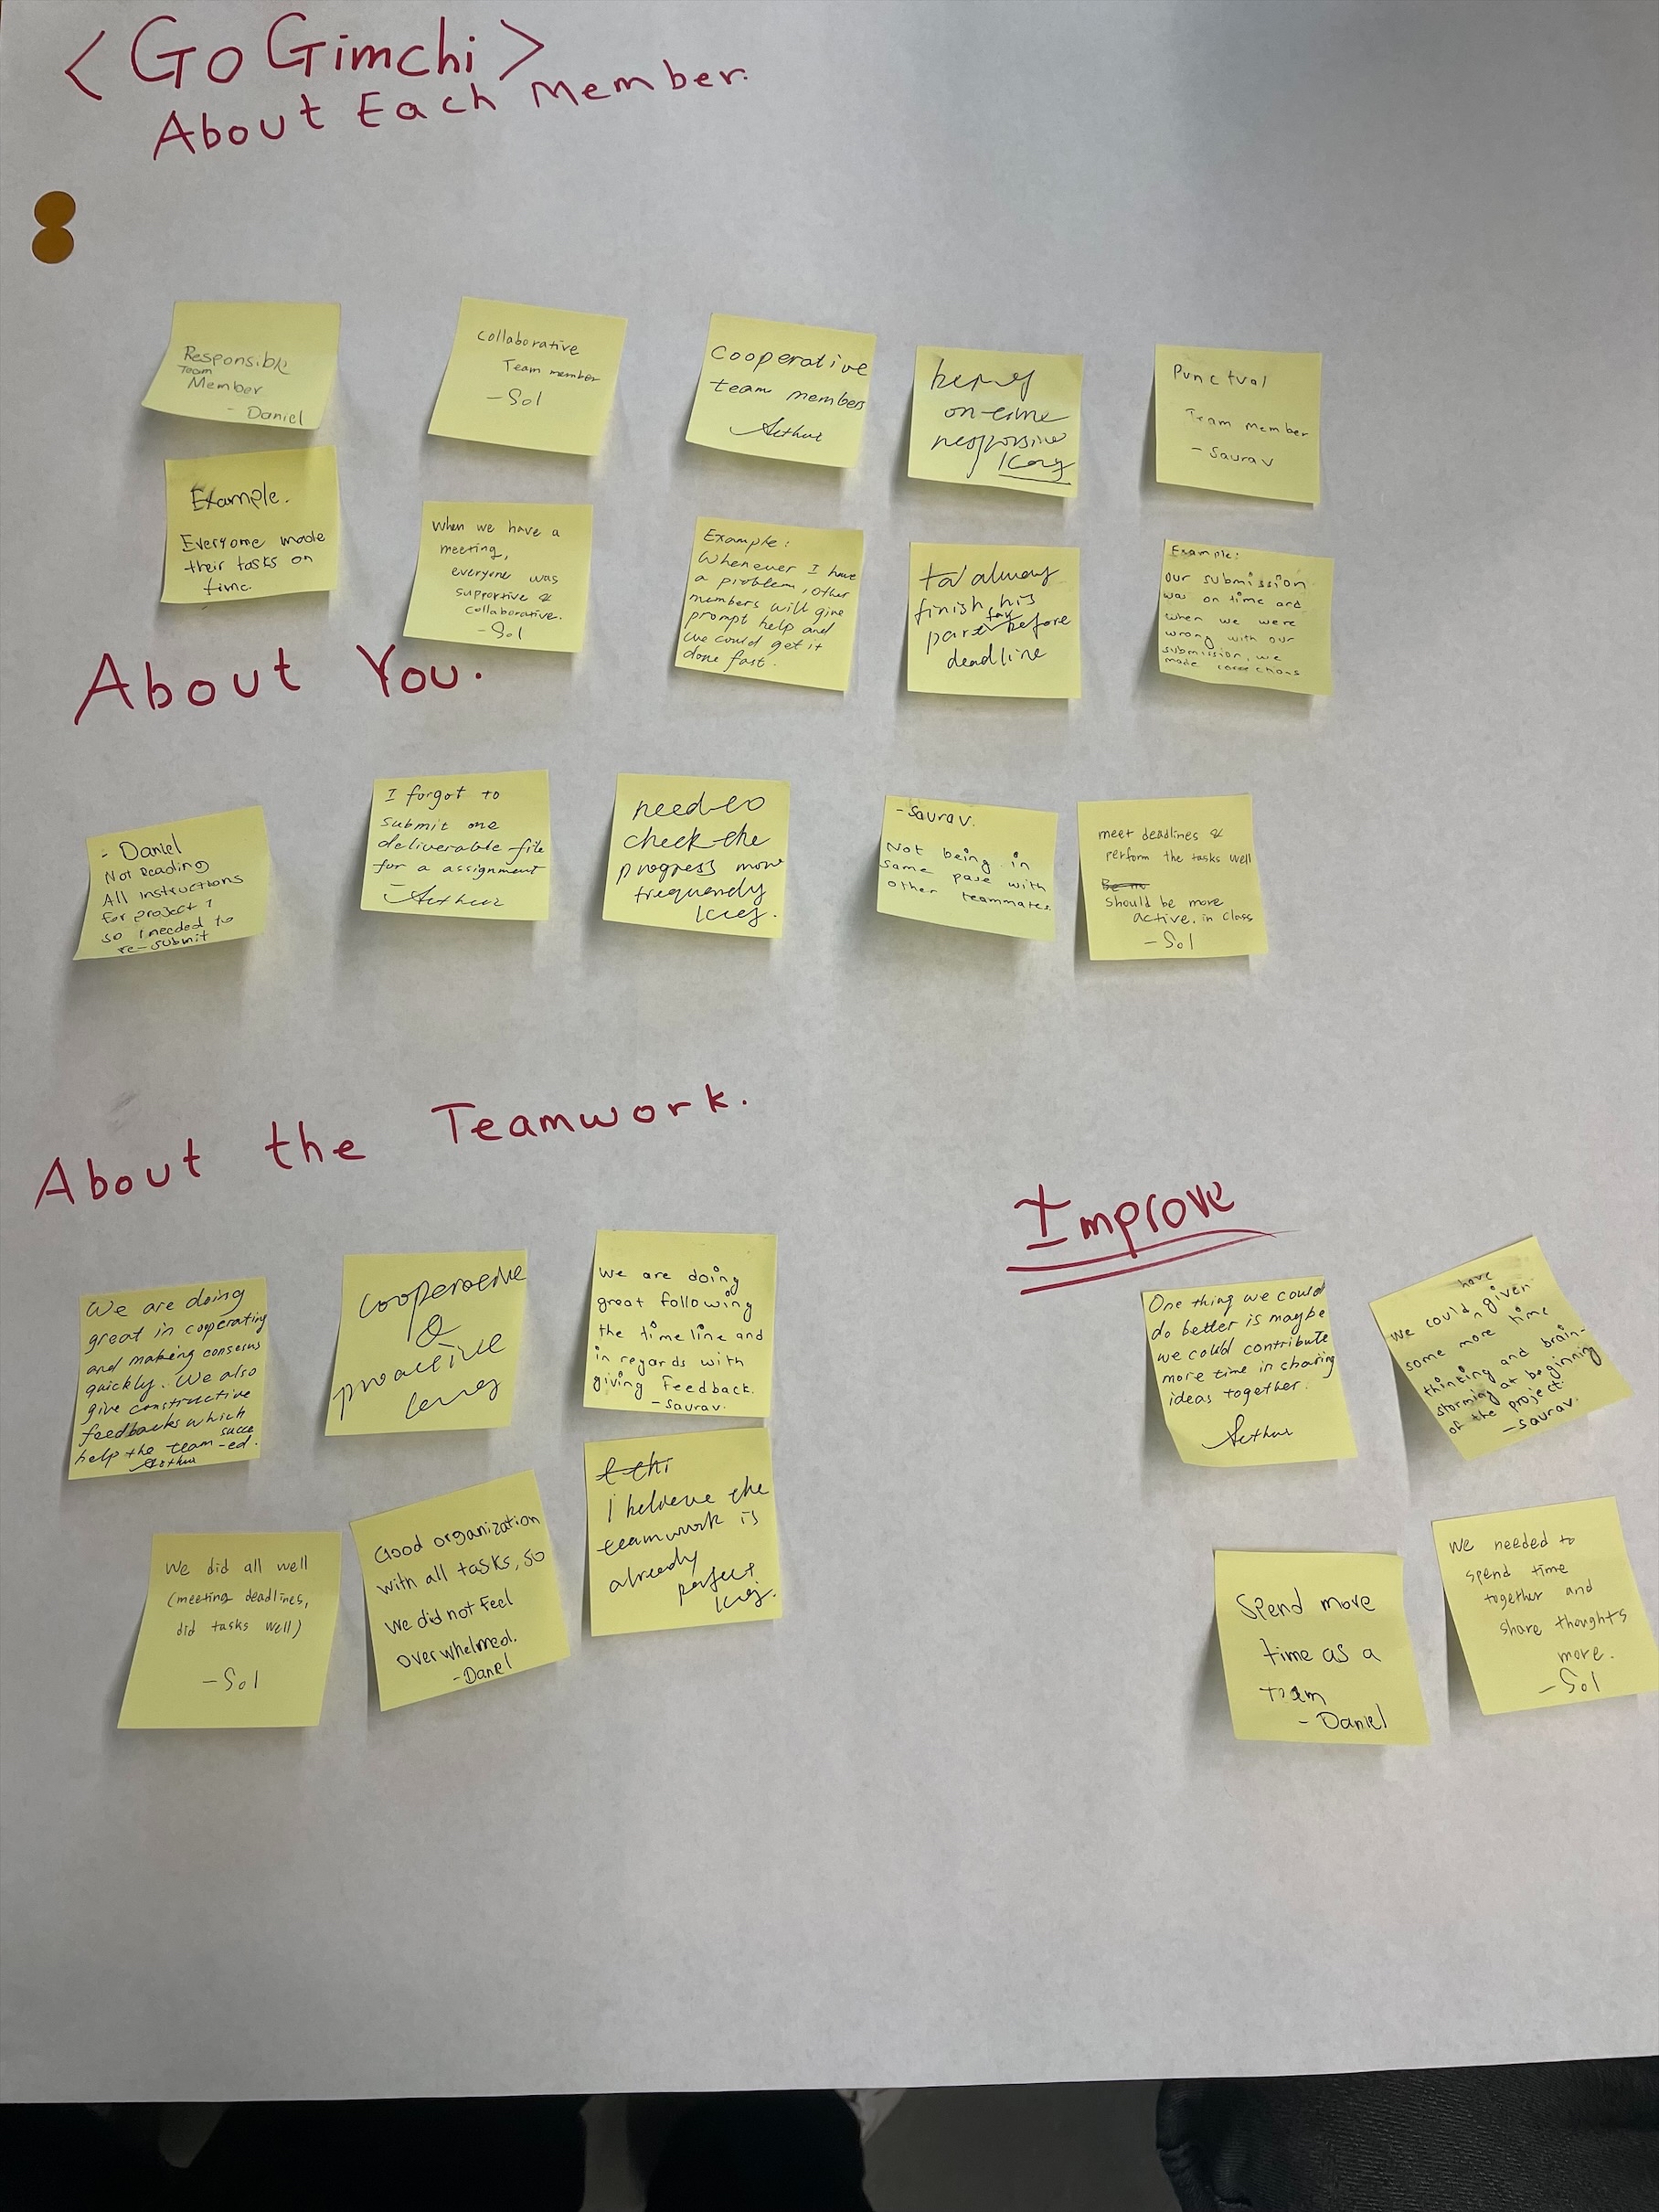 < Go Gimchi >
About Each Member.
Responsible
Team
Member
- Daniel
collaborative
Team member
- Sol
cooperative
team members
Arthur
being
on-time
responsive
Punctual
Team member
- Saurav
Example.
Everyone made
their tasks on
time.
When we have a
meeting,
everyone was
supportive &
collaborative.
- Sol
Example:
Whenever I have
a problem, other
members will give
prompt help and
we could get it
done fast.
always
finish his
part before
deadline
Example:
Our submission
was on time and
when we were
wrong with our
submission, we
made corrections
About You.
- Daniel
Not Reading
All Instructions
For project 1
so I needed to
re-submit
I forgot to
submit one
deliverable file
for a assignment
- Arthur
need to
check the
progress more
frequently
- Saurav.
Not being in
same pase with
other teammates.
meet deadlines &
perform the tasks well
should be more
active in class
- Sol
About the Teamwork.
We are doing
great in cooperating
and making consesus
quickly. We also
give constructive
feedbacks which
help the team succe
-ed.
Arthur
cooperative
&
proactive
We are doing
great following
the timeline and
in regards with
giving feedback.
- Saurav.
We did all well
(meeting deadlines,
did tasks well)
- Sol
Good organization
with all tasks, so
we did not feel
overwhelmed.
- Daniel
I believe the
teamwork is
already
perfect
Improve
One thing we could
do better is maybe
we could contribute
more time in sharing
ideas together.
Arthur
have
we could given
some more time
thinking and brain-
storming at beginning
of the project.
- Saurav.
Spend more
time as a
team
- Daniel
We needed to
spend time
together and
share thoughts
more.
- Sol